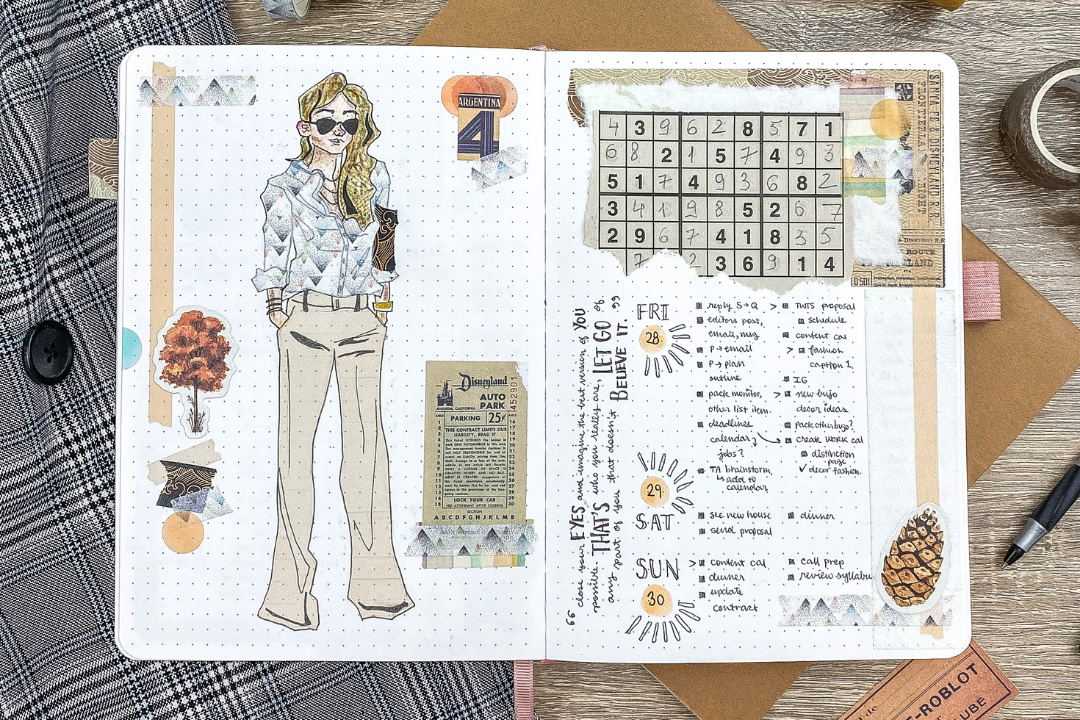 ARGENTINA
4
Disneyland
ANAHEIM, CALIFORNIA
AUTO
PARK
452901
PARKING 25¢
THIS CONTRACT LIMITS OUR
LIABILITY, READ IT
LOCK YOUR CAR
NO ATTENDANT AFTER CLOSING
SECTION
4 3 9 6 2 8 5 7 1
6 8 2 1 5 7 4 9 3
5 1 7 4 9 3 6 8 2
3 4 1 9 8 5 2 6 7
2 9 6 7 4 1 8 3 5
7 2 3 6 9 1 4
SANTA FE & DISNEYLAND R.R.
"close your EYES and imagine the best version of YOU
possible. THAT'S who you really are, LET GO of
any part of you that doesn't BELIEVE IT."
FRI
28
reply S→Q
editors post,
email, msg
P→email
P→plan
outline
pack monitor,
other list item.
deadlines
calendar,
jobs?
TA brainstorm
↳ add to
calendar
> TWTS proposal
schedule
content cal
> fashion
caption 1,
IG
> new bujo
decor ideas
pack other bujo?
create work cal
distinction
page
✓ decor fashion.
29
SAT
see new house
send proposal
dinner
SUN
30
> content cal
dinner
update
contract
call prep
review syllabu
T-ROBLOT
UBE